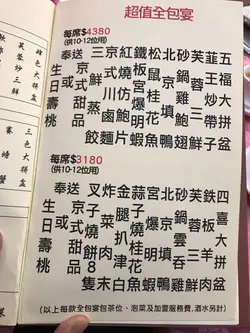 超值全包宴
每席$4380
(供10-12位用)
五福大拼盆
韮王炒帶子
芙蓉三鮮
砂鍋雞鮑翅
北京填鴨
松鼠桂花魚
鐵板宮爆明蝦
紅燒仿鮑片
京式川鹵麵
三鮮蒸餃
奉送
京式甜品
或
生日壽桃
每席$3180
(供10-12位用)
四喜大拼盆
鐵板羊肉
芙蓉三鮮
砂鍋雲吞雞
北京填鴨
宮爆明蝦
蒜子燒桂花魚
金腿扒津白
炸菜肉末
叉子燒餅8隻
奉送
京式甜品
或
生日壽桃
(以上每款全包宴包茶位、泡菜及加壹服務費,酒水另計)
色大拼盆
芙蓉炒
三色大拼盆
賽螃蟹